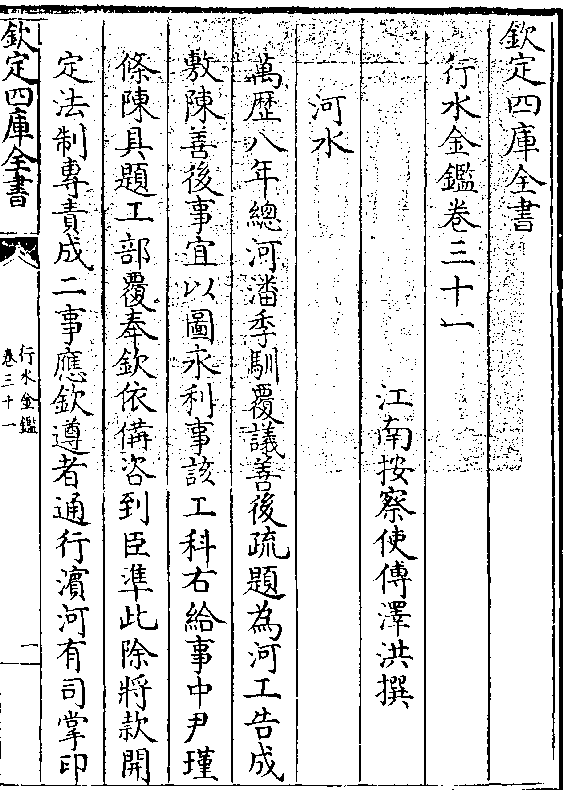 欽定四庫全書
行水金鑑卷三十一
江南按察使傅澤洪撰
河水
萬歷八年總河潘季馴覆議善後疏題為河工告成
敷陳善後事宜以圖永利事該工科右給事中尹瑾
條陳具題工部覆奉欽依備咨到臣準此除將款開
定法制專責成二事應欽遵者通行濵河有司掌印
欽定四庫全書
行水金鑑
卷三十一
一